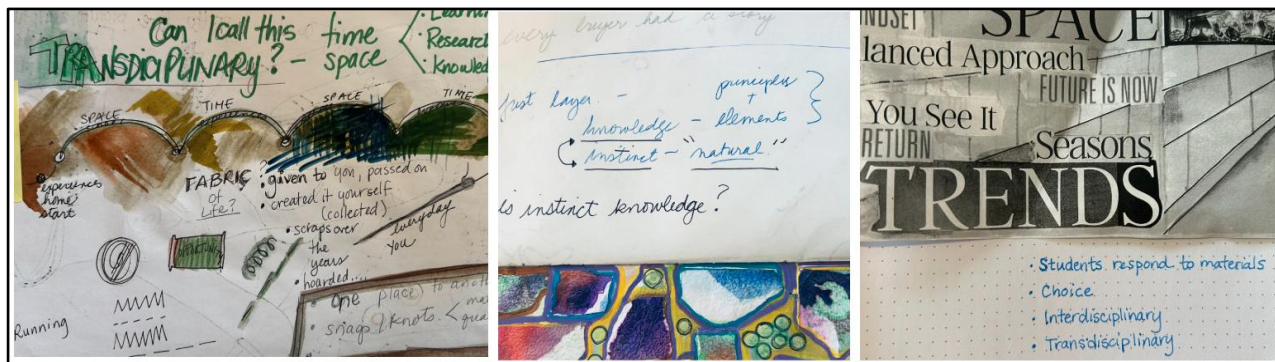 Can I call this time
TRANSDICIPLINARY? - space
Research
SPACE
TIME
SPACE
TIME
experiences
home
start
FABRIC
of
Life?
• given to you, passed on
• created it yourself
(collected)
• scraps over
the
years
• hoarded....
everyday
you
• one place) to
• snags / knots. <
Running
every layer had a story
first layer. -
principles
+
knowledge - elements
instinct - "natural"
is instinct knowledge?
SPACE
lanced Approach
FUTURE IS NOW
You See It
RETURN
Seasons
TRENDS
• Students respond to materials
• Choice
• Interdisciplinary
• Transdisciplinary